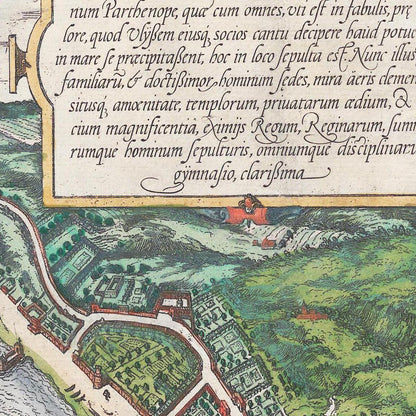 num Parthenope, quæ cum omnes, vti est in fabulis, præ
lore, quod Vlyssem eiusq́ socios cantu decipere haud potuc
in mare se præcipitaßent, hoc in loco sepulta est. Nunc illus
familiarū, & doctißimor, hominum sedes, mira aëris demen
situsq́, amœnitate, templorum, priuatarum ædium, &
cium magnificentia, eximijs Regum, Reginarum, summ
rumque hominum sepulturis, omniumque disciplinaru
gÿmnasio, clarißima